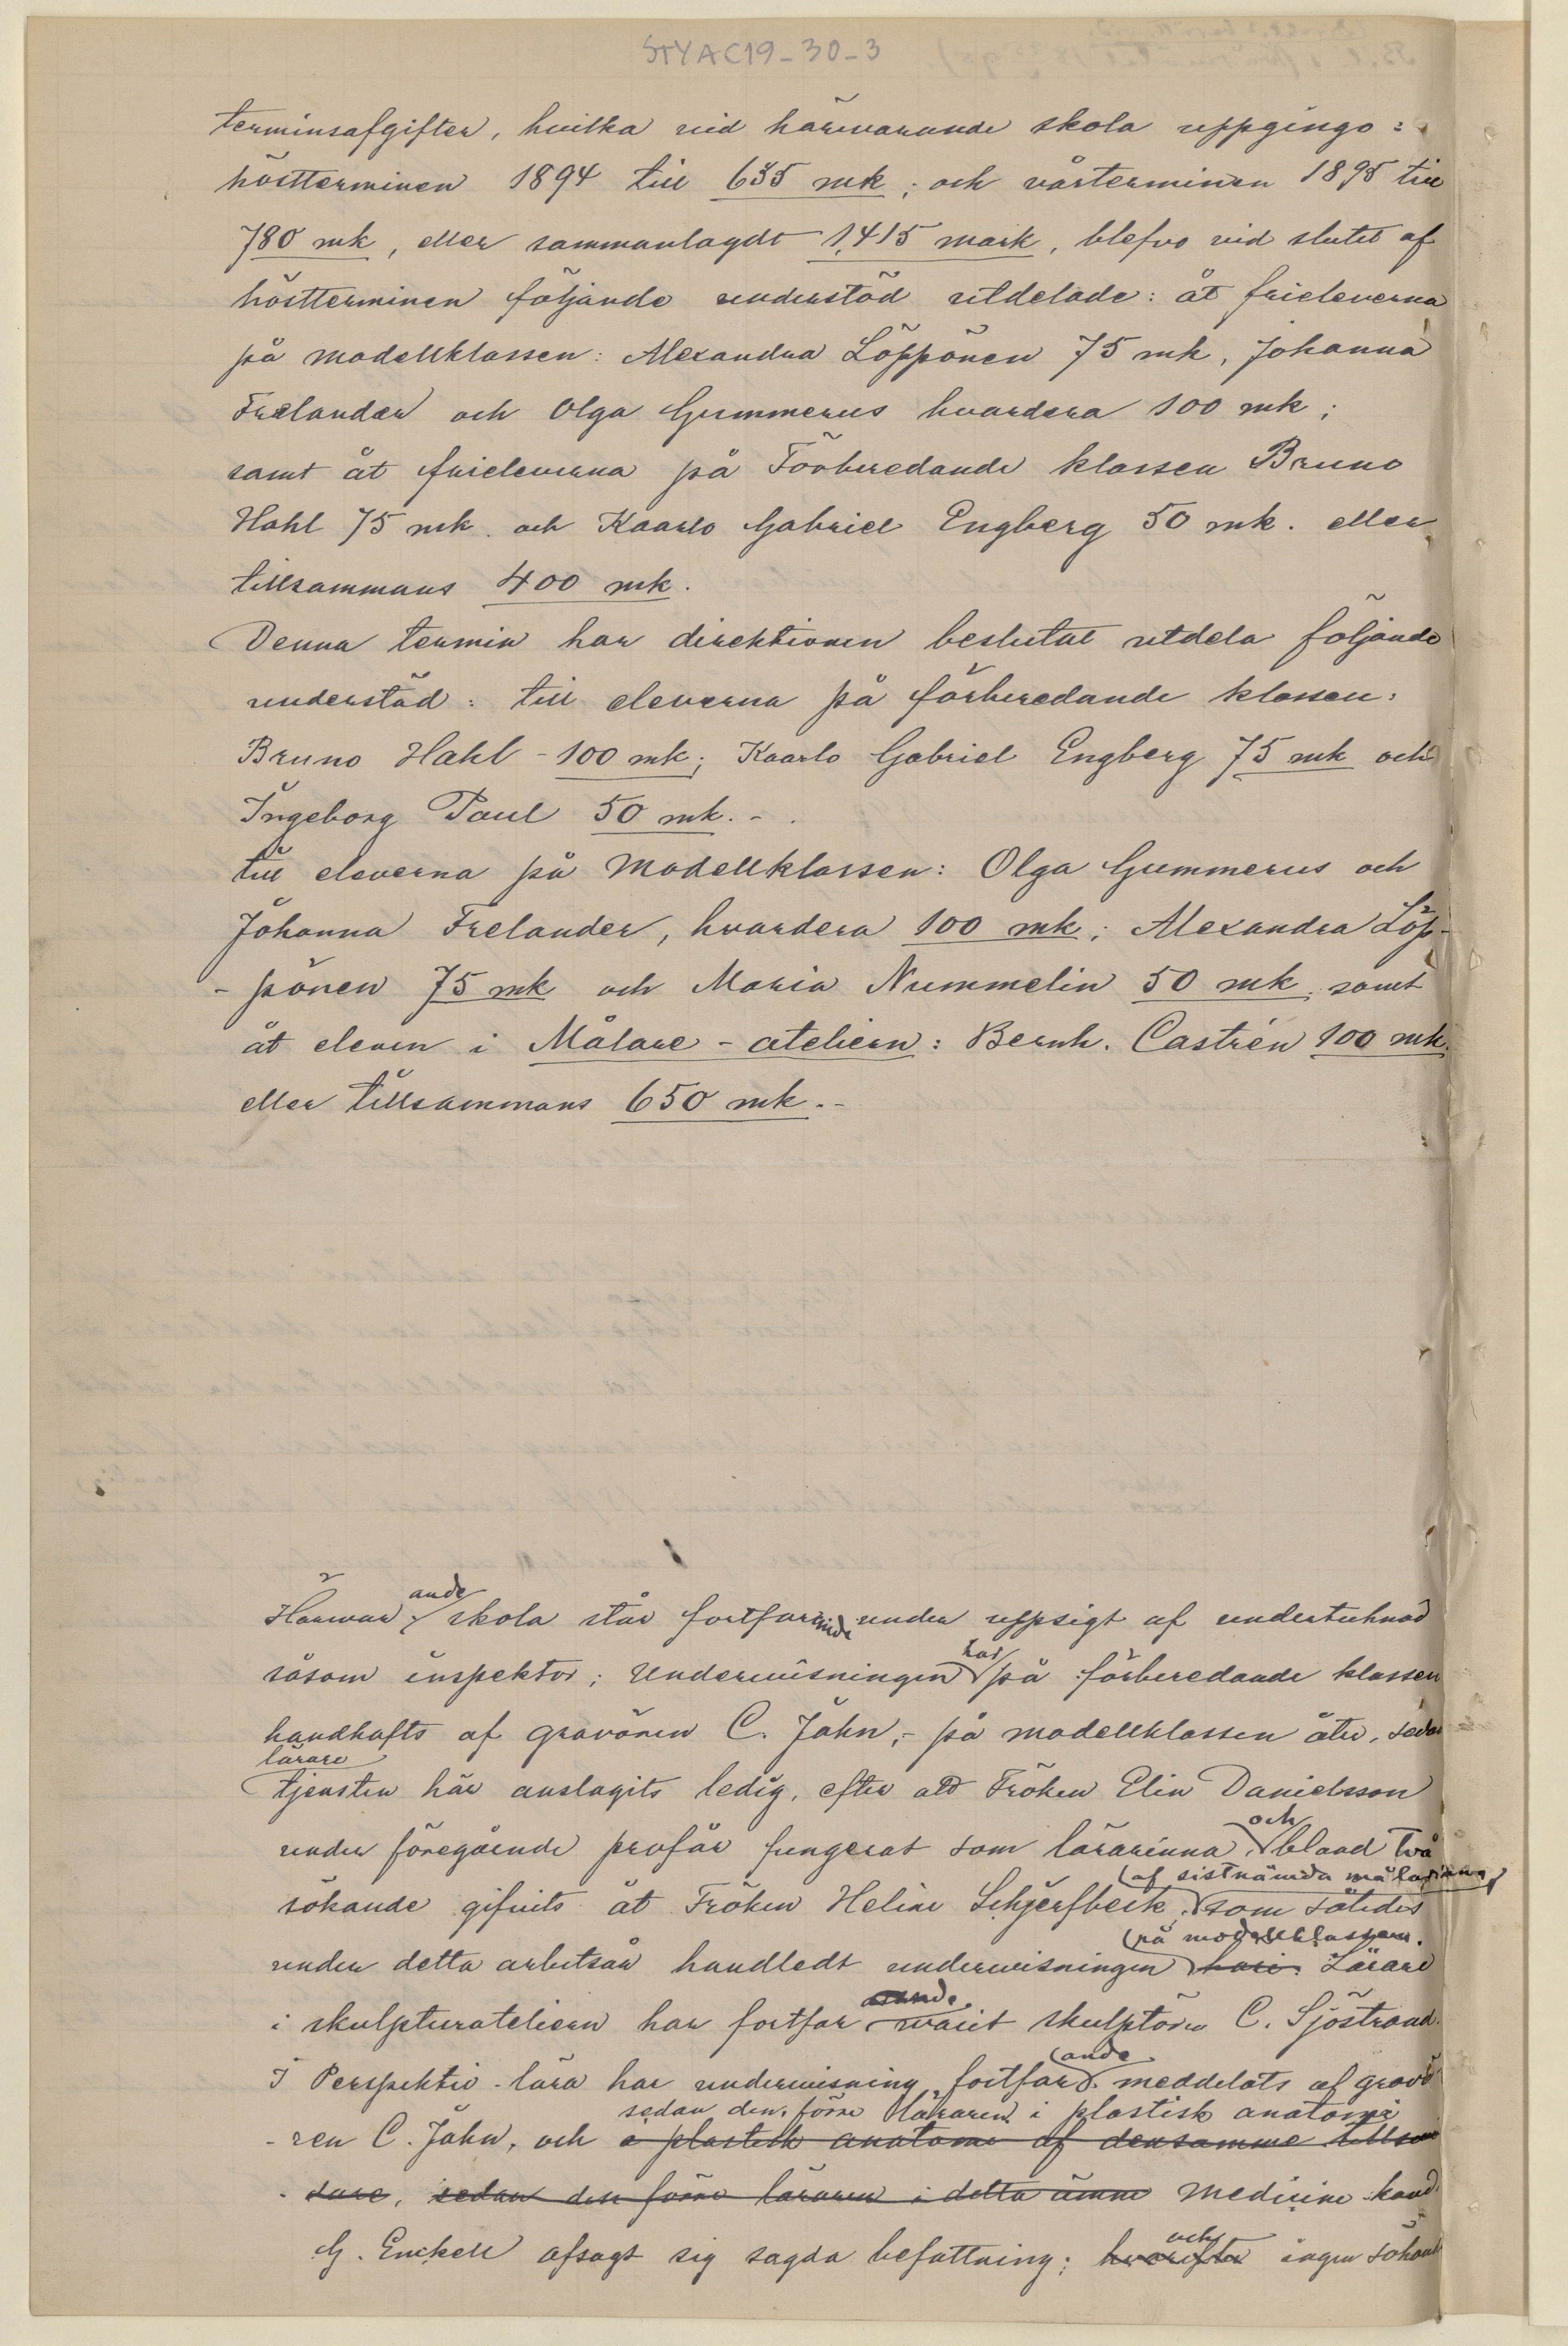 STYAC19-30-3
terminsafgifter, hvilka vid härvarande skola uppgingo:
höstterminen 1894 till 635 mk; och vårterminen 1895 till
780 mk, eller sammanlagdt 1,415 mark, blefvo vid slutet af
höstterminen följande understöd utdelade: åt frieleverna
på modellklassen: Alexandra Löppönen 75 mk, Johanna
Frelander och Olga Gummerus hvardera 100 mk;
samt åt frieleverna på Förberedande klassen Bruno
Hahl 75 mk. och Kaarlo Gabriel Engberg 50 mk. eller
tillsammans 400 mk.
Denna termin har direktionen beslutat utdela följande
understöd: till eleverna på förberedande klassen:
Bruno Hahl - 100 mk; Kaarlo Gabriel Engberg 75 mk och
Ingeborg Paul 50 mk. -
till eleverna på Modellklassen: Olga Gummerus och
Johanna Frelander, hvardera 100 mk; Alexandra Löp-
- pönen 75 mk och Maria Nummelin 50 mk, samt
åt eleven i Målare-ateliern: Bernh. Castrén 100 mk.
eller tillsammans 650 mk. -
ande
Härvar skola står fortfarande under uppsigt af undertecknad
har
såsom inspektor; Undervisningen på förberedande klassen
handhafts af gravören C. Jahn, - på modellklassen åter, sedan
lärare
tjensten här anslagits ledig, efter att Fröken Elin Danielsson
och
under föregående profår fungerat som lärarinna, bland två
af sistnämda målarinna,
sökande gifvits åt Fröken Helene Schjerfbeck, som således
på modellklassen.
under detta arbetsår handledt undervisningen Lärare
i skulpturateliern har fortfar varit skulptören C. Sjöstrand.
ande
I Perspektiv-lära har undervisning fortfar. meddelats af gravö
sedan den förre läraren i plastisk anatomi
- ren C. Jahn, och i plastisk anatomi af densamme tillsvi
- dare, sedan den förre läraren i detta ämne medicine kand.
och
G. Enckell afsagt sig sagda befattning; hvarefter ingen sökand